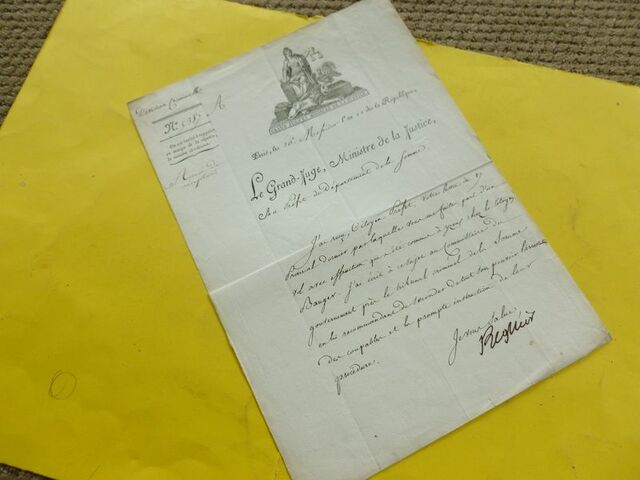 Division Criminelle
N.º
A
On est invité à rappeler
en marge de la réponse
le numéro ci-dessus.
Paris, le 26 Messidor l'an 11 de la République
Le Grand-Juge, Ministre de la Justice,
Au Préfet du Département de la Somme.
J'ai reçu, Citoyen Préfet, votre lettre du
Prairial dernier par laquelle vous me faites part d'un
vol avec effraction qui a été commis à chez le Citoyen
Banger. J'ai écrit à ce sujet au Commissaire du
gouvernement près le tribunal criminel de la Somme
en lui recommandant de seconder de tout son pouvoir
des coupables et la prompte instruction de leur
procédure.
Je vous salue.
Regnier